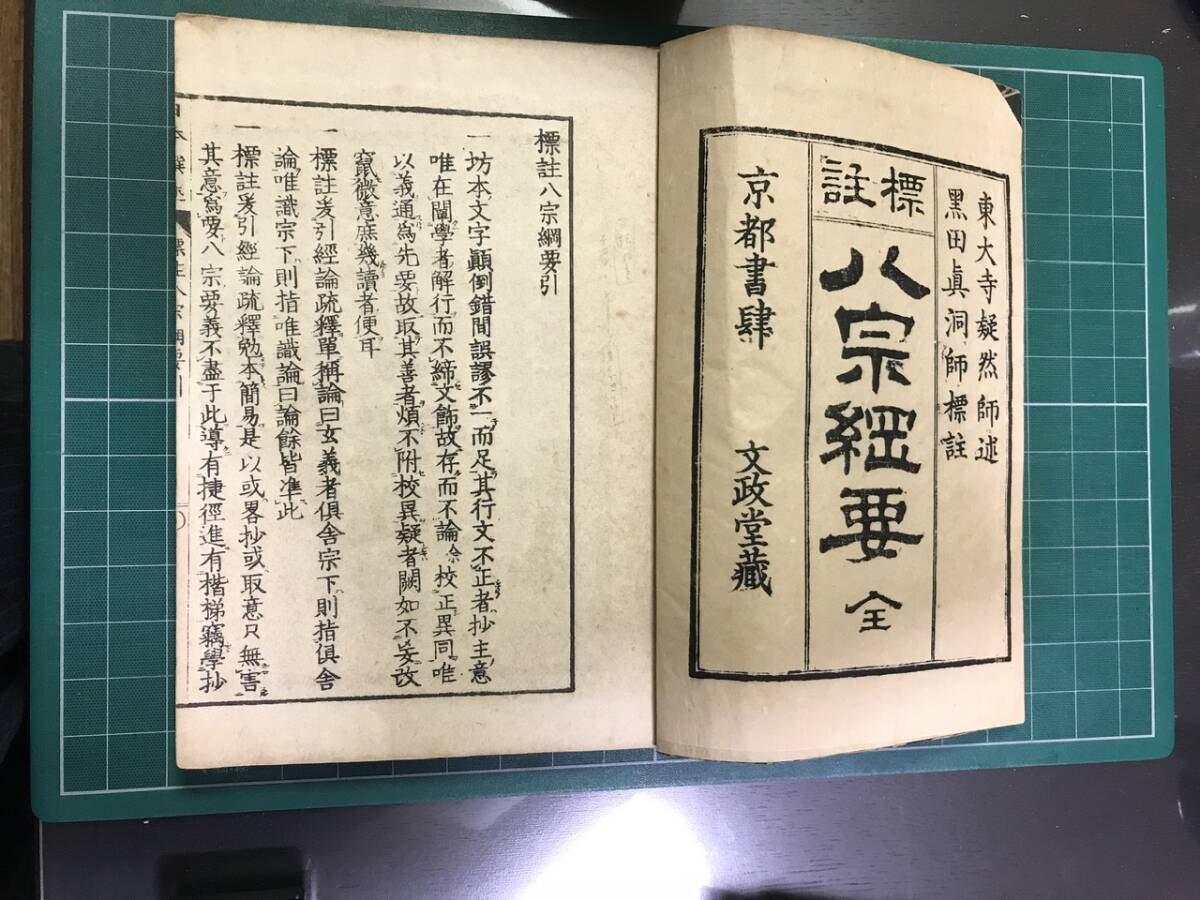 東大寺凝然師述
黑田眞洞師標註
標註
八宗綱要 全
京都書肆 文政堂藏
標註八宗綱要引
一坊本文字顚倒錯間誤謬不一而足其行文不正者抄主意
唯在闡學者解行而不締文飾故存而不論校正異同唯
以義通爲先要故取其善者煩不附校異疑者闕如不妄改
竄微意庶幾讀者便耳
一標註爰引經論疏釋單稱論曰玄義者俱舍宗下則指俱舍
論唯識宗下則指唯識論曰論餘皆准此
一標註爰引經論疏釋勉本簡易是以或畧抄或取意只無害
其意爲要八宗要義不盡于此導有捷徑進有楷梯竊學抄
標註八宗綱要引